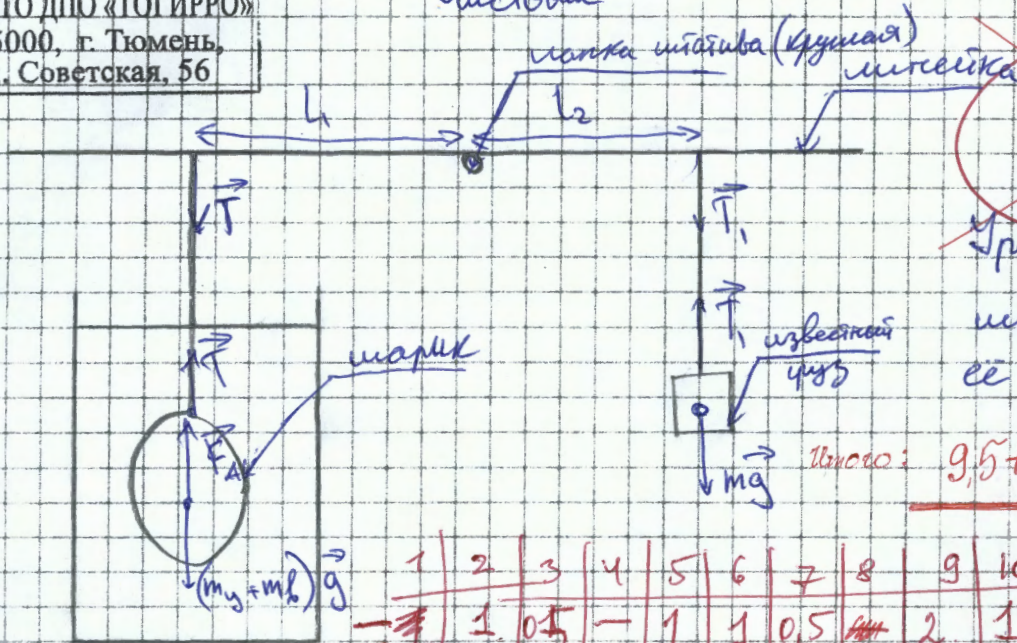 ТО ДПО «ТОГИРРО»
5000, г. Тюмень,
. Советская, 56
лапка штатива (круглая)
линейка
L₁
L₂
T
T₁
T
T₁
шарик
известный
груз
её
F_A
mg
Итого: 9,5
(m_ц + m_в) g
1 2 3 4 5 6 7 8 9 10
1 0,5 — 1 1 0,5 2 1